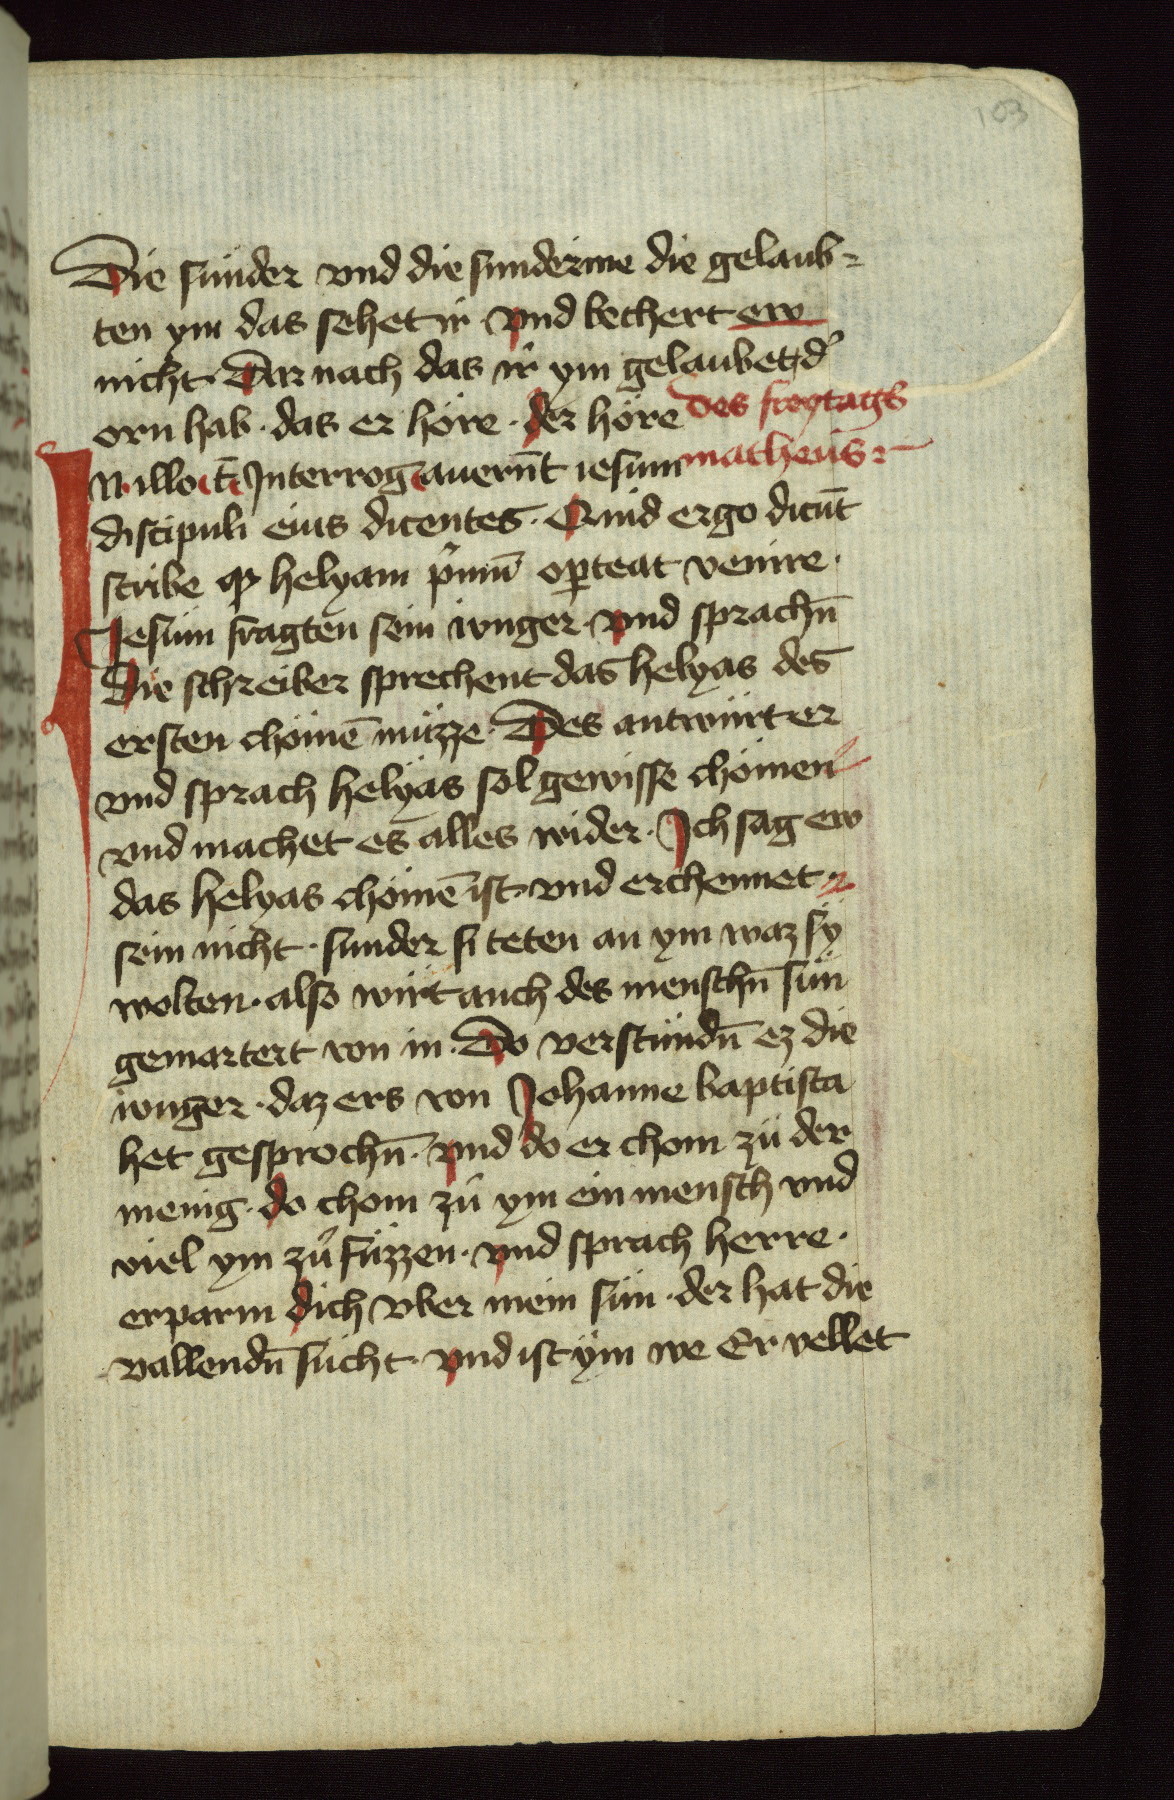 103
Die sünder vnd die sunderinne die gelaub-
ten ym das sehet ir vnd bechert ew
nicht · Dar nach das ir ym gelaubet · d᾽
orn hab · das er höre · der höre des freytags
IN illo t̄ Interrogauerūt iesum matheüs
discipuli eius dicentes · Quid ergo dicūt
scribe ꝙ helyam p̓mū oꝑteat venire ·
Iesüm fragten sein iunger · vnd sprachn̄
Die schreiber sprechent das helyas des
ersten chömē müzze · Des antwürt er
vnd sprach helÿas sol gewisse chömen
vnd machet es alles wider · Ich sag ew
das helyas chömē ist · vnd erchennet
sein nicht · sunder si teten an ym waz sÿ
wolten · also wirt auch des menschn̄ sün
gemartert von in · Do verstündn̄ ez die
iunger · daz ers von Johanne baptista
het gesprochn̄ · vnd do er chom zü der
menig · do chom zů ym ein mensch vnd
viel ym zů füzzen · vnd sprach herre ·
erparm dich vber mein sün · der hat die
vallendn̄ sücht · vnd ist ÿm we Er vellet